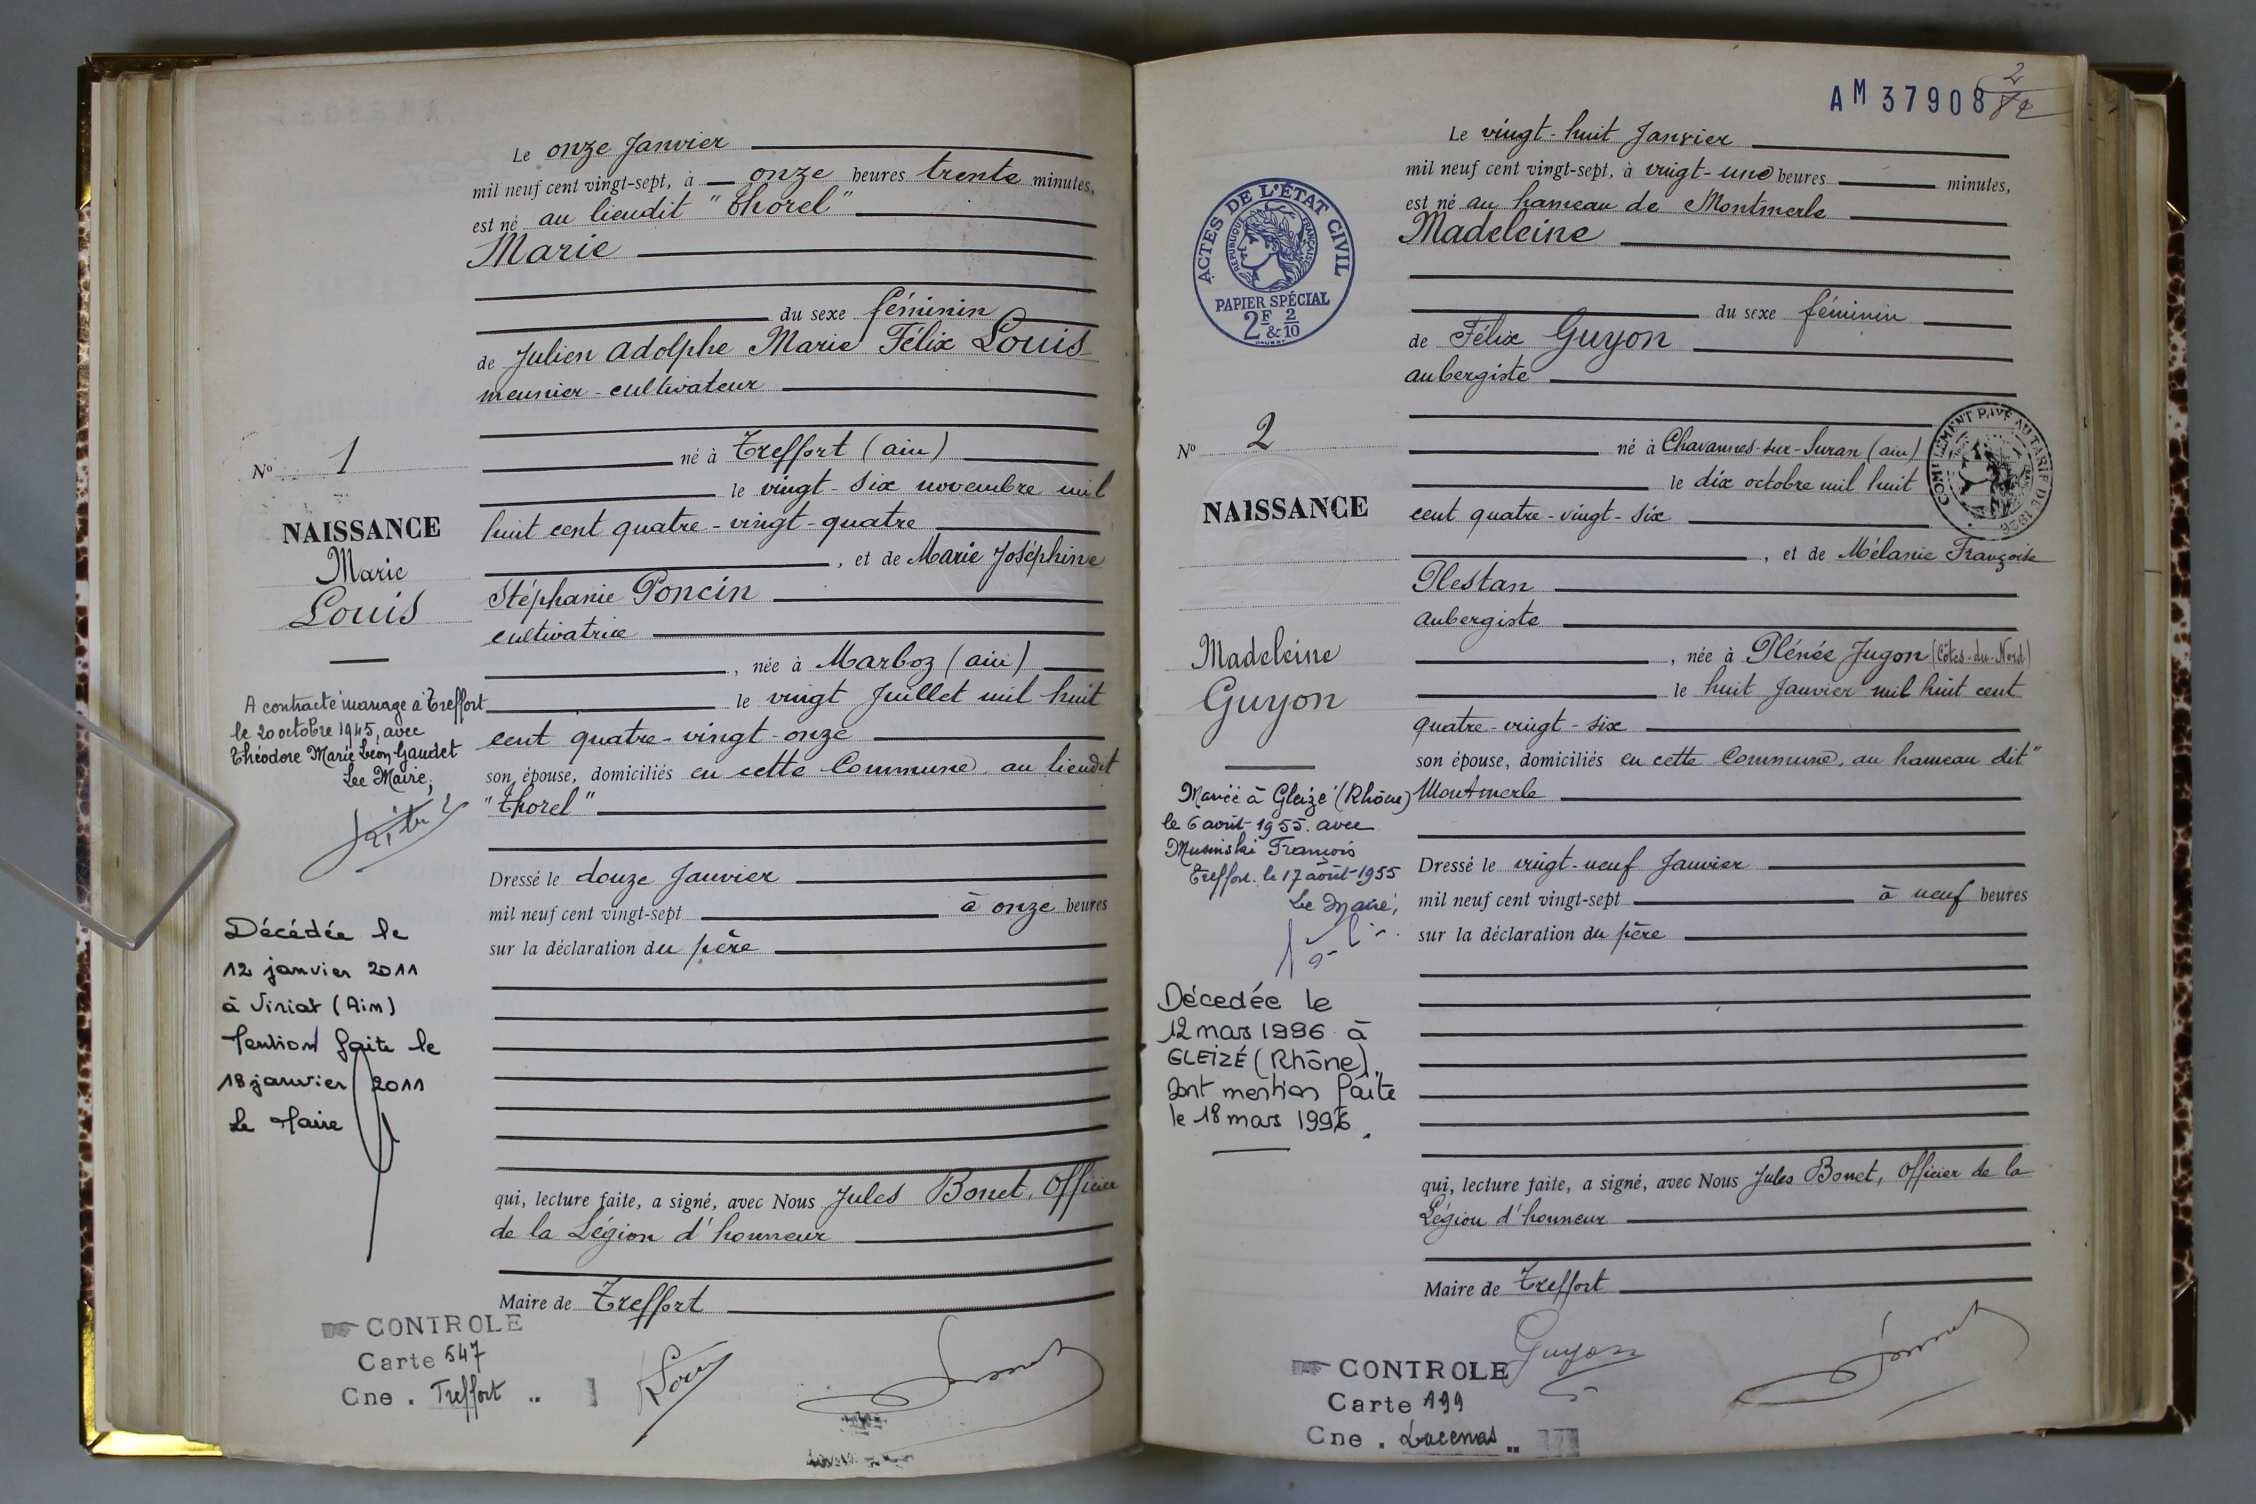 Le onze Janvier
mil neuf cent vingt-sept, à onze heures trente minutes,
est né au lieudit "Thorel"
Marie
du sexe féminin
de Julien Adolphe Marie Félix Louis
meunier-cultivateur
né à Treffort (ain)
le vingt-six novembre mil
huit cent quatre-vingt-quatre
, et de Marie Joséphine
Stéphanie Poncin
cultivatrice
, née à Marboz (ain)
le vingt Juillet mil huit
cent quatre-vingt-onze
son épouse, domiciliés en cette Commune, au lieudit
"Thorel"
Dressé le douze Janvier
mil neuf cent vingt-sept à onze heures
sur la déclaration du père
qui, lecture faite, a signé, avec Nous Jules Bonet, Officier
de la Légion d'honneur
Maire de Treffort
No 1
NAISSANCE
Marie
Louis
A contracté mariage à Treffort
le 20 octobre 1945, avec
Théodore Marie Léon Gaudet
Le Maire,
Décédée le
12 janvier 2011
à Viriat (Ain)
Mention faite le
18 janvier 2011
Le Maire
CONTROLE
Carte 547
Cne. Treffort
AM 37908
2
Le vingt-huit Janvier
mil neuf cent vingt-sept, à vingt-une heures minutes,
est né au hameau de Montmerle
Madeleine
du sexe féminin
de Félix Guyon
aubergiste
né à Chavannes-sur-Suran (ain)
le dix octobre mil huit
cent quatre-vingt-six
, et de Mélanie Françoise
Plestan
aubergiste
, née à Plénée Jugon (Côtes-du-Nord)
le huit Janvier mil huit cent
quatre-vingt-six
son épouse, domiciliés en cette Commune, au hameau dit "
Montmerle
Dressé le vingt-neuf Janvier
mil neuf cent vingt-sept à neuf heures
sur la déclaration du père
qui, lecture faite, a signé, avec Nous Jules Bonet, Officier de la
Légion d'honneur
Maire de Treffort
Guyon
ACTES DE L'ÉTAT CIVIL
RÉPUBLIQUE FRANÇAISE
PAPIER SPÉCIAL
2F & 2/10
COMPLÉMENT PAYÉ AU TARIF DE 1926
No 2
NAISSANCE
Madeleine
Guyon
Mariée à Gleizé (Rhône)
le 6 août 1955 avec
François
Treffort le 17 août 1955
Le Maire,
Décedée le
12 mars 1996 à
GLEIZÉ (Rhône).
Dont mention faite
le 18 mars 1996.
CONTROLE
Carte 199
Cne. Lacenas